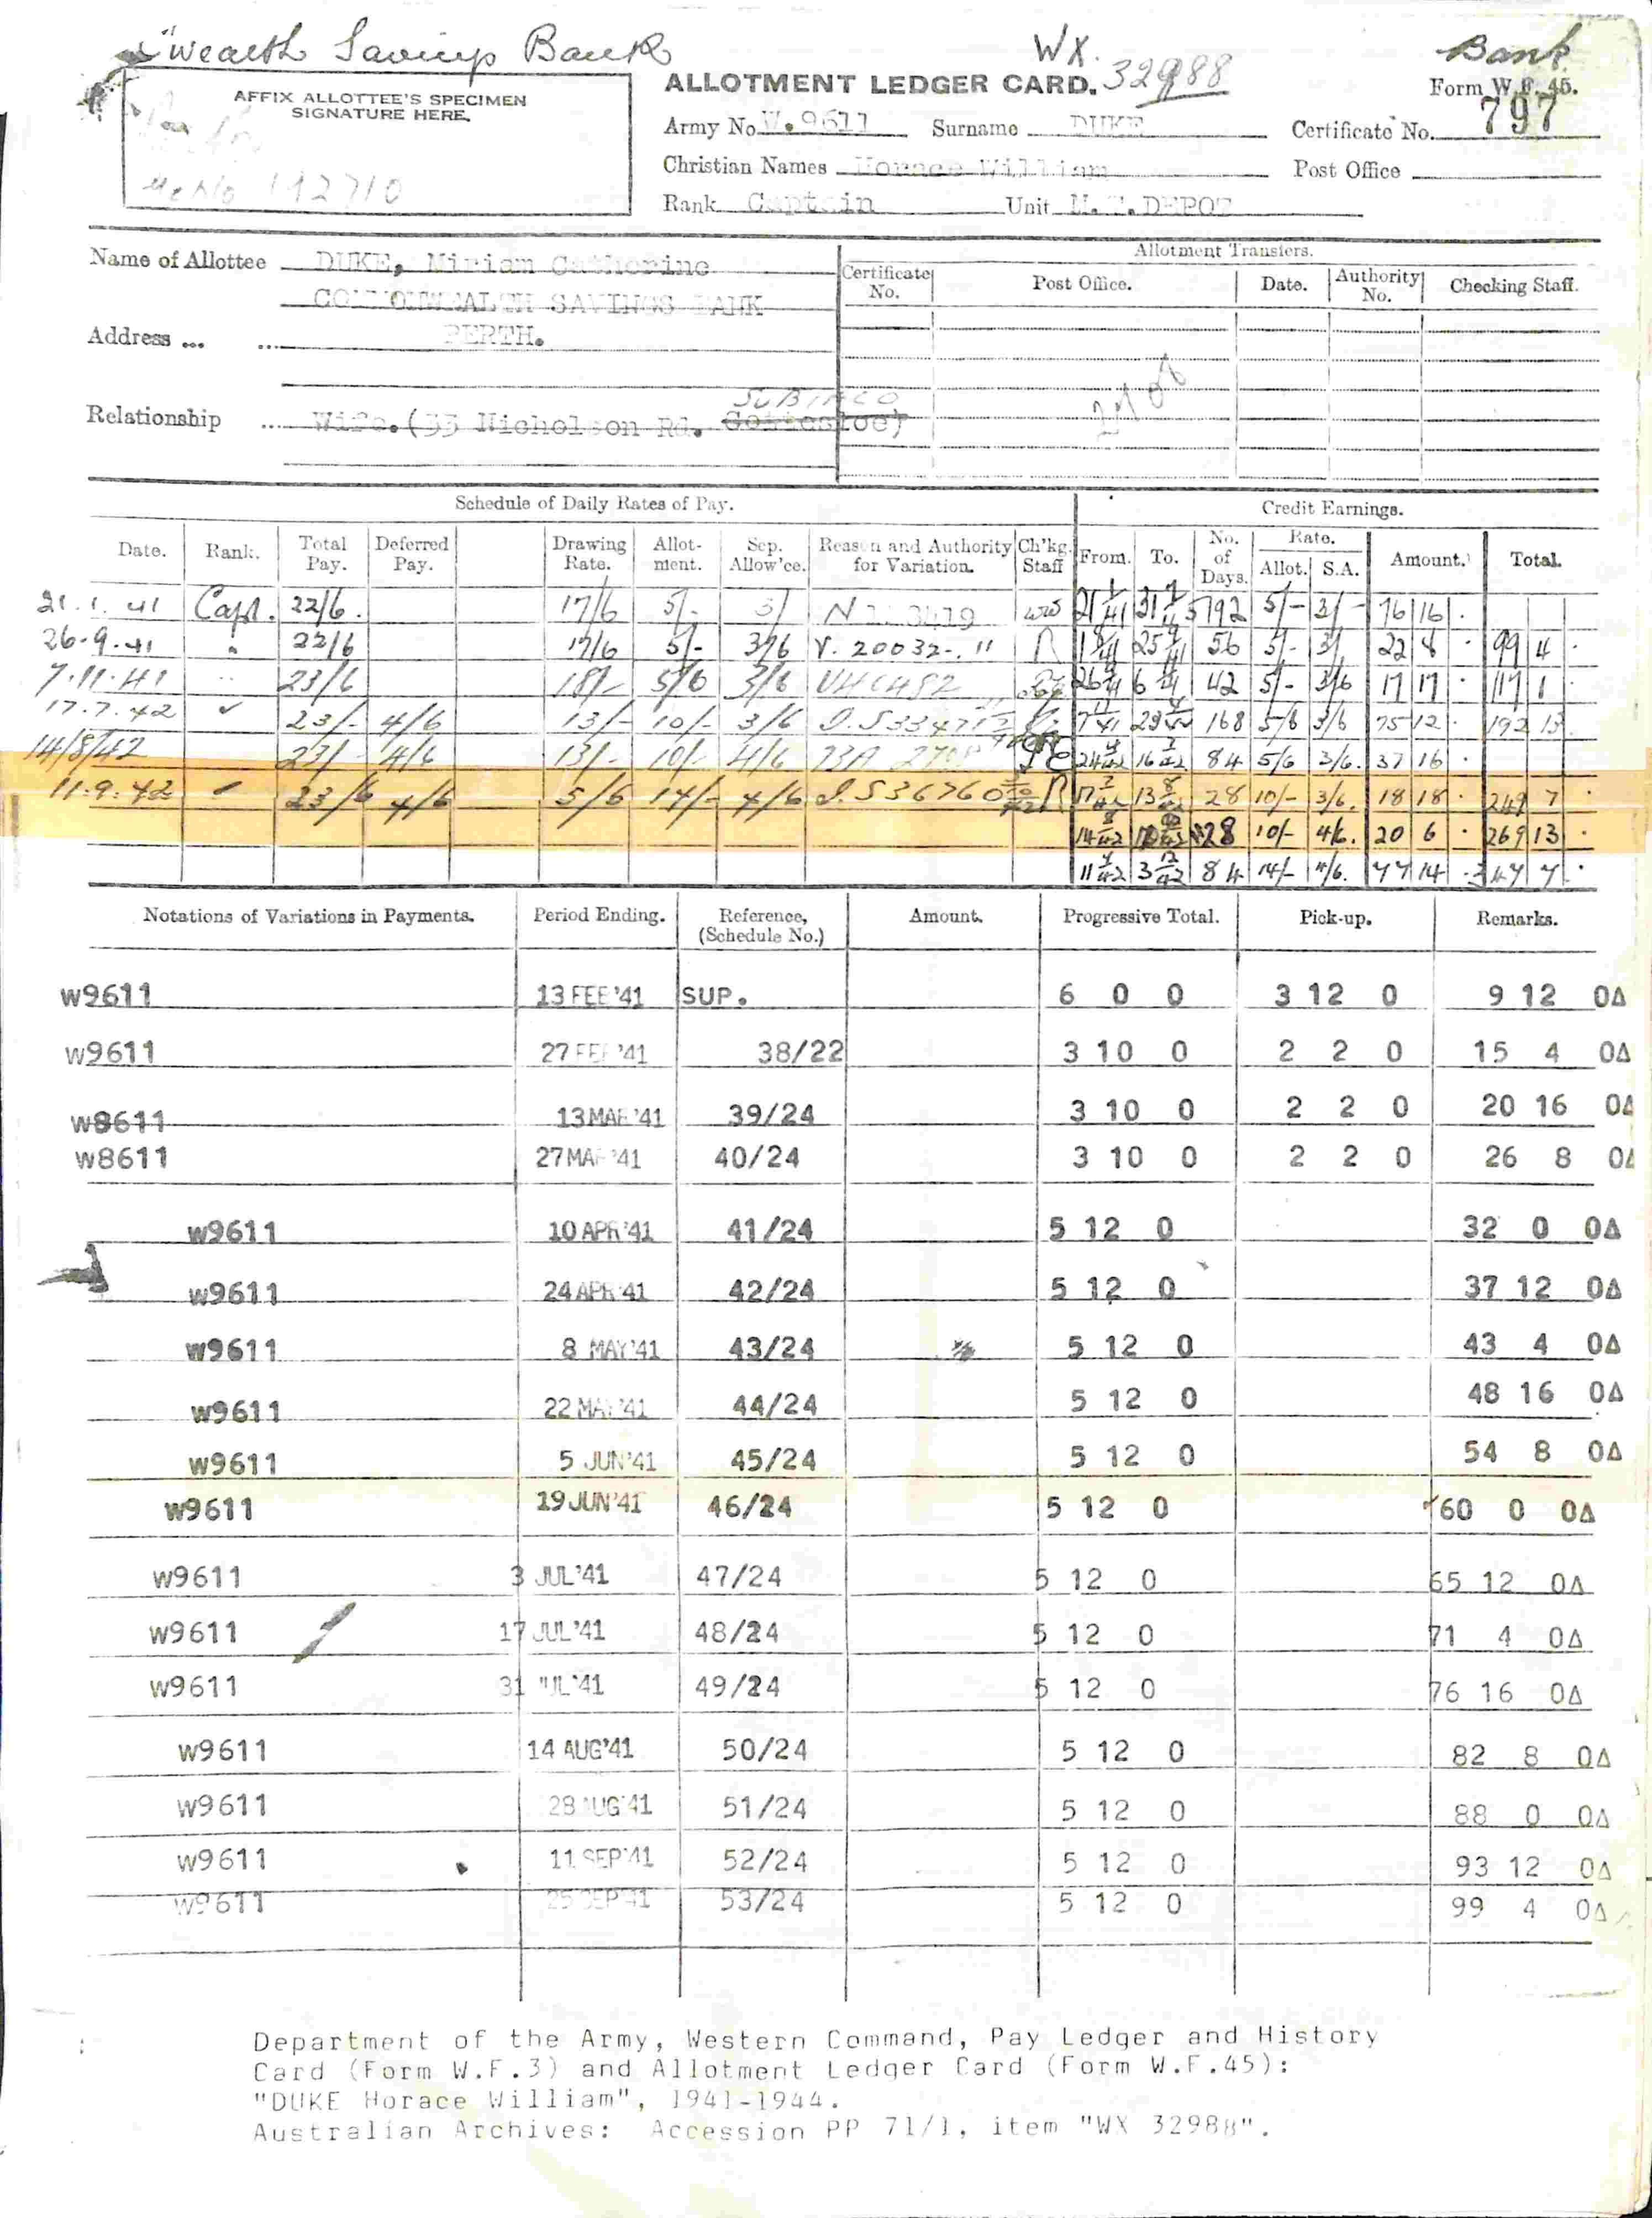 C'wealth Savings Bank
WX. 32988
Bank
Form W.F. 45.
AFFIX ALLOTTEE'S SPECIMEN
SIGNATURE HERE.
192710
ALLOTMENT LEDGER CARD.
Army No. W.9611 Surname DUKE Certificate No. 797
Christian Names Horace William Post Office
Rank Captain Unit M.T. DEPOT
Name of Allottee DUKE, Miriam Catherine
COMMONWEALTH SAVINGS BANK
Address ... ... PERTH.
SUBIACO
Relationship ... Wife. (33 Nicholson Rd. Cottesloe)
Allotment Transfers.
Certificate No. Post Office. Date. Authority No. Checking Staff.
Schedule of Daily Rates of Pay.
Date. Rank. Total Pay. Deferred Pay. Drawing Rate. Allot-ment. Sep. Allow'ce. Reason and Authority for Variation. Ch'kg. Staff
21.1.41 Capt. 22/6 17/6 5/- 3/
26.9.41 " 22/6 17/6 5/- 3/6 V. 20032
7.11.41 " 23/6 18/- 5/6 3/6
17.7.42 23/- 4/6 13/- 10/- 3/6
14/8/42 23/- 4/6 13/- 10/- 4/6
11.9.42 23/6 4/6 5/6 14/- 4/6 S36760
Credit Earnings.
From. To. No. of Days. Rate. Allot. S.A. Amount. Total.
192 5/- 3/- 76 16
56 5/- 3/ 22 8 99 4
42 5/- 3/6 17 17 117 1
168 5/6 3/6 75 12 192 13
84 5/6 3/6 37 16
28 10/- 3/6 18 18 249 7
28 10/- 4/6 20 6 269 13
84 14/- 4/6 77 14 347 7
Notations of Variations in Payments. Period Ending. Reference, (Schedule No.) Amount. Progressive Total. Pick-up. Remarks.
W9611 13 FEB '41 SUP. 6 0 0 3 12 0 9 12 0Δ
W9611 27 FEB '41 38/22 3 10 0 2 2 0 15 4 0Δ
W8611 13 MAR '41 39/24 3 10 0 2 2 0 20 16 0Δ
W8611 27 MAR '41 40/24 3 10 0 2 2 0 26 8 0Δ
W9611 10 APR '41 41/24 5 12 0 32 0 0Δ
W9611 24 APR '41 42/24 5 12 0 37 12 0Δ
W9611 8 MAY '41 43/24 5 12 0 43 4 0Δ
W9611 22 MAY '41 44/24 5 12 0 48 16 0Δ
W9611 5 JUN '41 45/24 5 12 0 54 8 0Δ
W9611 19 JUN '41 46/24 5 12 0 60 0 0Δ
W9611 3 JUL '41 47/24 5 12 0 65 12 0Δ
W9611 17 JUL '41 48/24 5 12 0 71 4 0Δ
W9611 31 JUL '41 49/24 5 12 0 76 16 0Δ
W9611 14 AUG '41 50/24 5 12 0 82 8 0Δ
W9611 28 AUG '41 51/24 5 12 0 88 0 0Δ
W9611 11 SEP '41 52/24 5 12 0 93 12 0Δ
W9611 25 SEP '41 53/24 5 12 0 99 4 0Δ
Department of the Army, Western Command, Pay Ledger and History
Card (Form W.F.3) and Allotment Ledger Card (Form W.F.45):
"DUKE Horace William", 1941-1944.
Australian Archives: Accession PP 71/1, item "WX 32988".